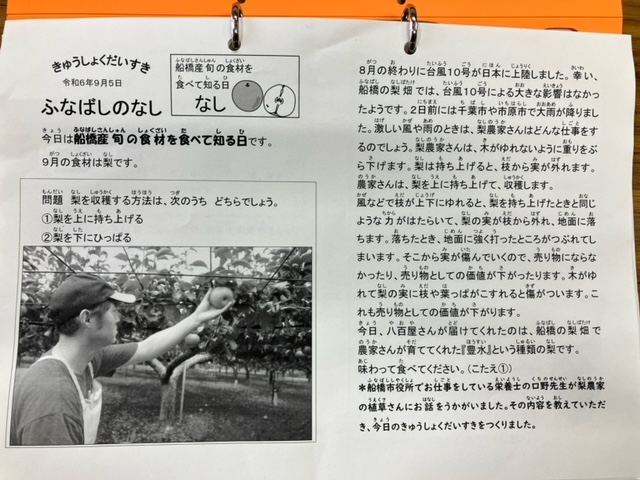 きゅうしょくだいすき
令和6年9月5日
ふなばしのなし
船橋産旬の食材を
食べて知る日
なし
今日は船橋産旬の食材を食べて知る日です。
9月の食材は梨です。
問題 梨を収穫する方法は、次のうち どちらでしょう。
①梨を上に持ち上げる
②梨を下にひっぱる
8月の終わりに台風10号が日本に上陸しました。幸い、
船橋の梨畑では、台風10号による大きな影響はなかっ
たようです。2日前には千葉市や市原市で大雨が降りまし
た。激しい風や雨のときは、梨農家さんはどんな仕事をす
るのでしょう。梨農家さんは、木がゆれないように重りをぶ
ら下げます。梨は持ち上げると、枝から実が外れます。
農家さんは、梨を上に持ち上げて、収穫します。
風などで枝が上下にゆれると、梨を持ち上げたときと同じ
ような力がはたらいて、梨の実が枝から外れ、地面に落
ちます。落ちたとき、地面に強く打ったところがつぶれてし
まいます。そこから実が傷んでいくので、売り物にならな
かったり、売り物としての価値が下がったります。木がゆ
れて梨の実に枝や葉っぱがこすれると傷がついます。こ
れも売り物としての価値が下がります。
今日、八百屋さんが届けてくれたのは、船橋の梨畑で
農家さんが育ててくれた『豊水』という種類の梨です。
味わって食べてください。(こたえ①)
*船橋市役所でお仕事をしている栄養士の口野先生が梨農家
の植草さんにお話をうかがいました。その内容を教えていただ
き、今日のきゅうしょくだいすきをつくりました。